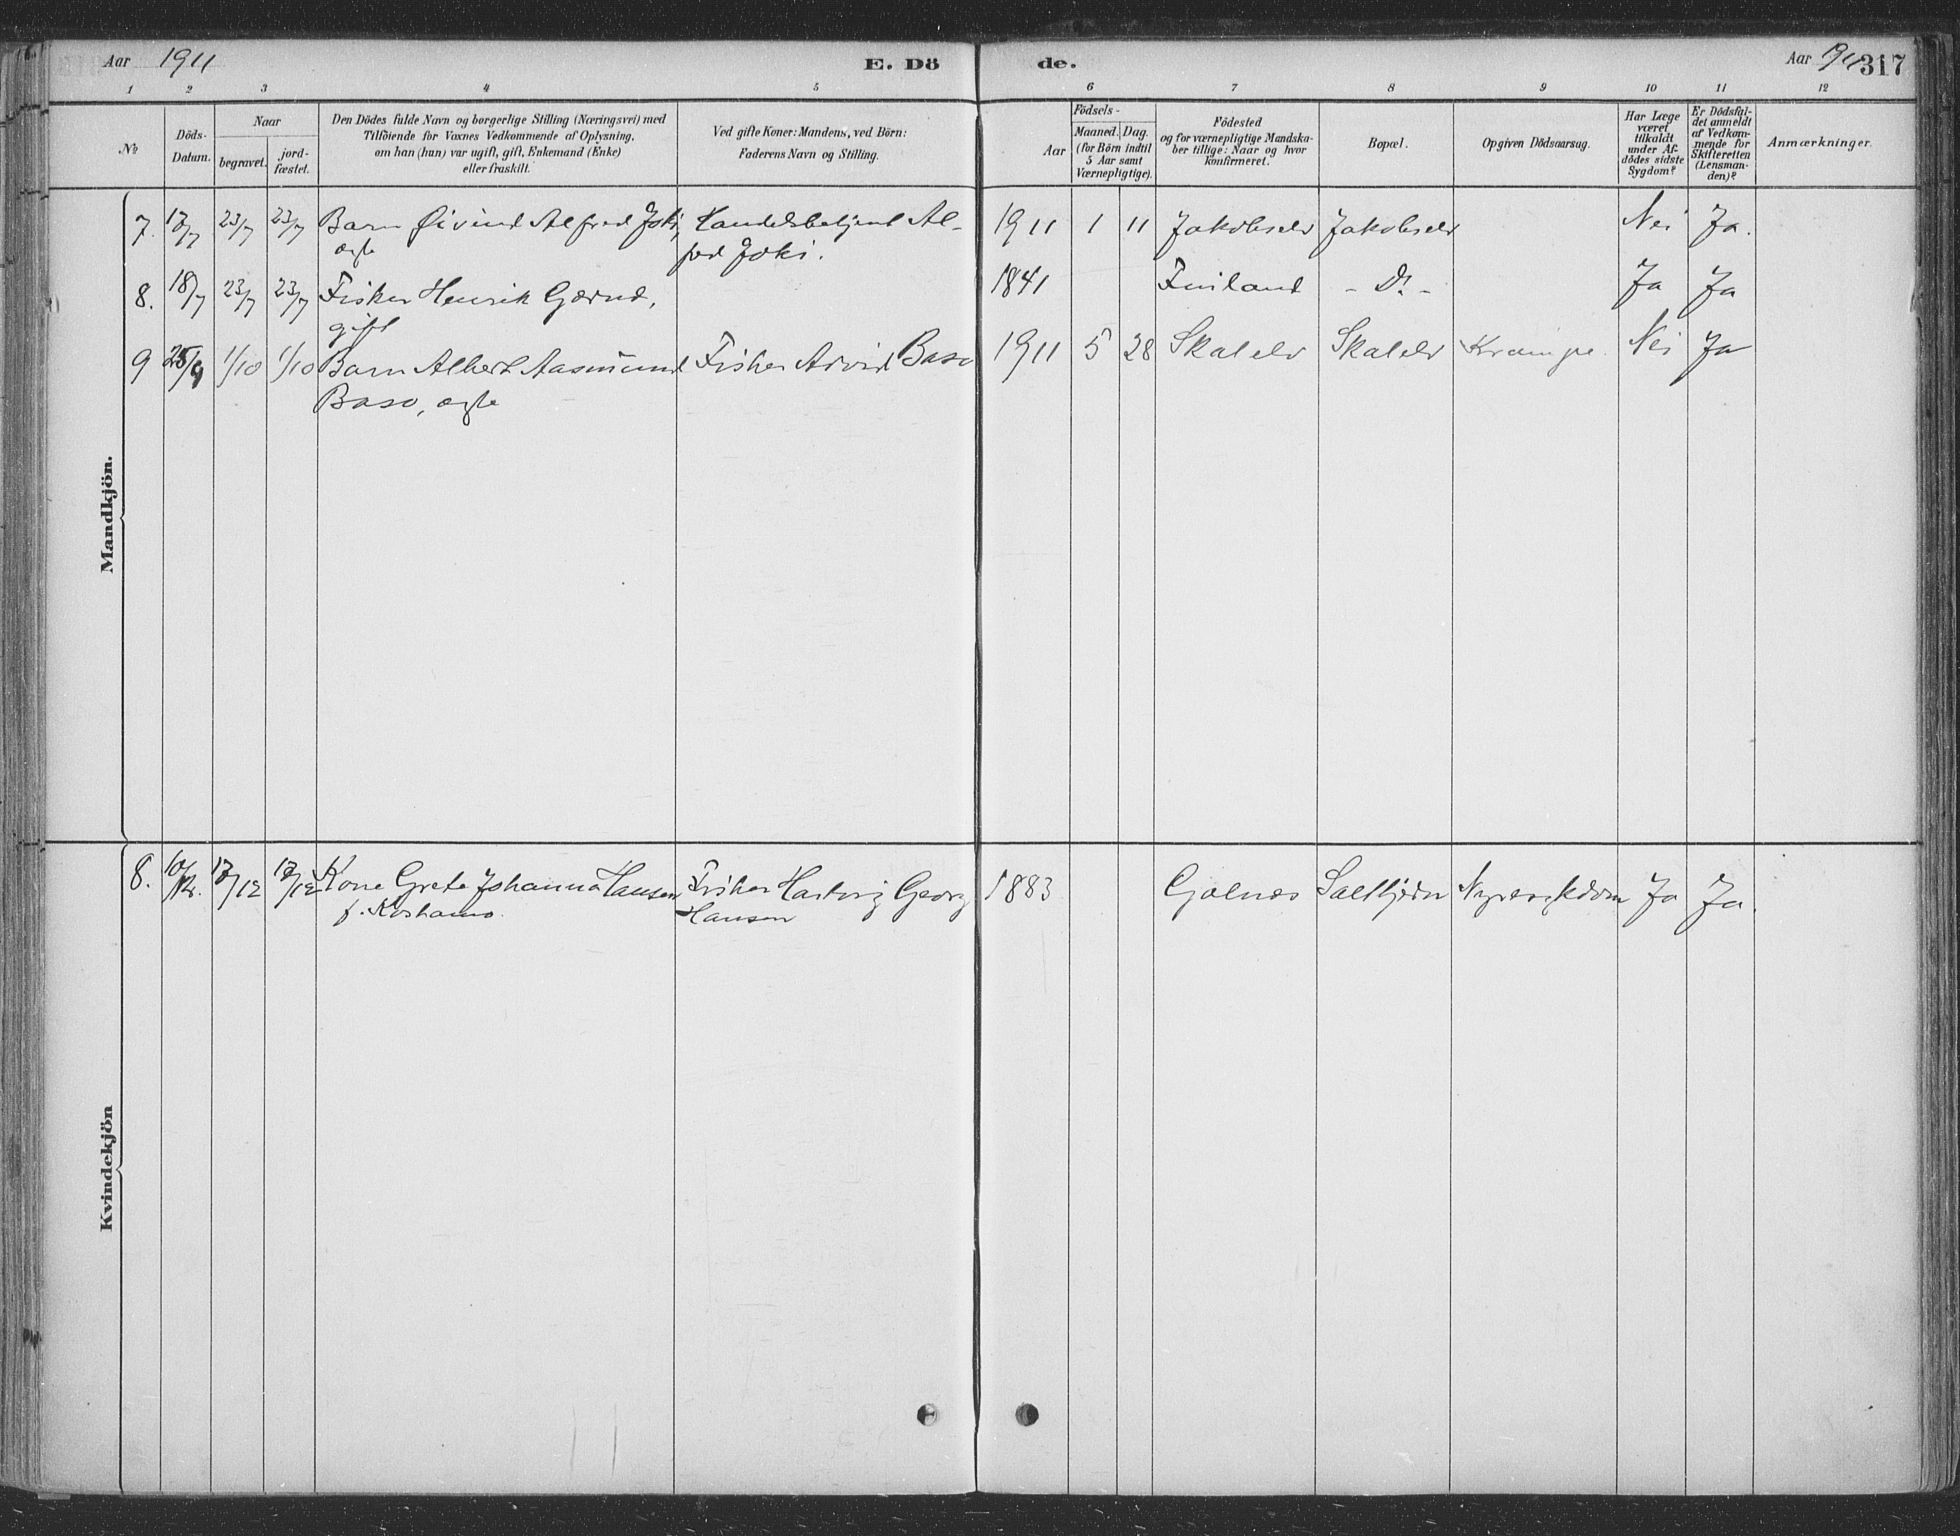 Aar 1911 E. Dö
de. Aar 1911 317
1 2 3 4 5 6 7 8 9 10 11 12
№
Döds-
Datum.
Naar
begravet.
jord-
fæstet.
Den Dödes fulde Navn og borgerlige Stilling (Næringsvei) med
Tilföiende for Voxnes Vedkommende af Oplysning,
om han (hun) var ugift, gift, Enkemand (Enke)
eller fraskilt.
Ved gifte Koner: Mandens, ved Börn:
Faderens Navn og Stilling.
Födsels-
Aar
Maaned. Dag.
(for Börn indtil
5 Aar samt
Værnepligtige).
Födested
og for værnepligtige Mandska-
ber tillige: Naar og hvor
konfirmeret.
Bopæl.
Opgiven Dödsaarsag.
Har Læge
været
tilkaldt
under Af-
dödes sidste
Sygdom?
Er Dödsfal-
det anmeldt
af Vedkom-
mende for
Skifteretten
(Lensman-
den)?
Anmærkninger.
Mandkjön.
7. 13/7 23/7 23/7 Barn Øivind Alfred Joki, Handelsbetjent Al- 1911 1 11 Jakobselv Jakobselv Nei Ja.
ægte fred Joki.
8. 18/7 23/7 23/7 Fisker Henrik 1841 Finland - Do - Ja Ja
gift
9 25/9 1/10 1/10 Barn Albert Aasmund Fisker Arvid Baso 1911 5 28 Skalelv Skalelv Krampe Nei Ja
Baso, ægte
Kvindekjön
8. 10/12. 17/12 17/12 Kone Grete Johanna Hansen Fisker Hartvig Georg 1883 Golnes Saltfjern Nyresykdom Ja Ja.
f. Hansen